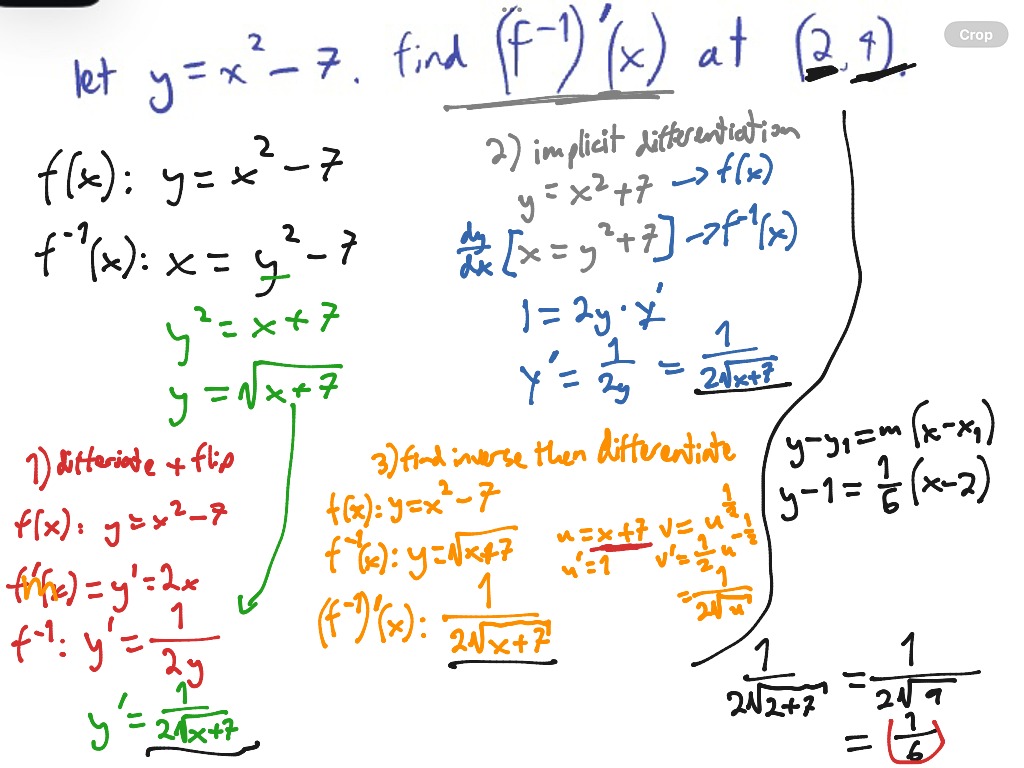 let y = x² - 7. find (f⁻¹)'(x) at (2, 4).
Crop
f(x): y = x² - 7
f⁻¹(x): x = y² - 7
y² = x + 7
y = √(x + 7)
2) implicit differentiation
y = x² + 7 → f(x)
dy/dx [x = y² + 7] → f⁻¹(x)
1 = 2y · y'
y' = 1/2y = 1/2√x+7
1) differiate + flip
f(x): y = x² - 7
f'(x) = y' = 2x
f⁻¹: y' = 1/2y
y' = 1/2√x+7
3) find inverse then differentiate
f(x): y = x² - 7
f⁻¹(x): y = √x+7
(f⁻¹)'(x): 1/2√x+7
u = x + 7 v = u^½
u' = 1 v' = ½ u^-½
= 1/2√u
y - y₁ = m (x - x₁)
y - 1 = 1/6 (x - 2)
1/2√2+7 = 1/2√9
= (1/6)